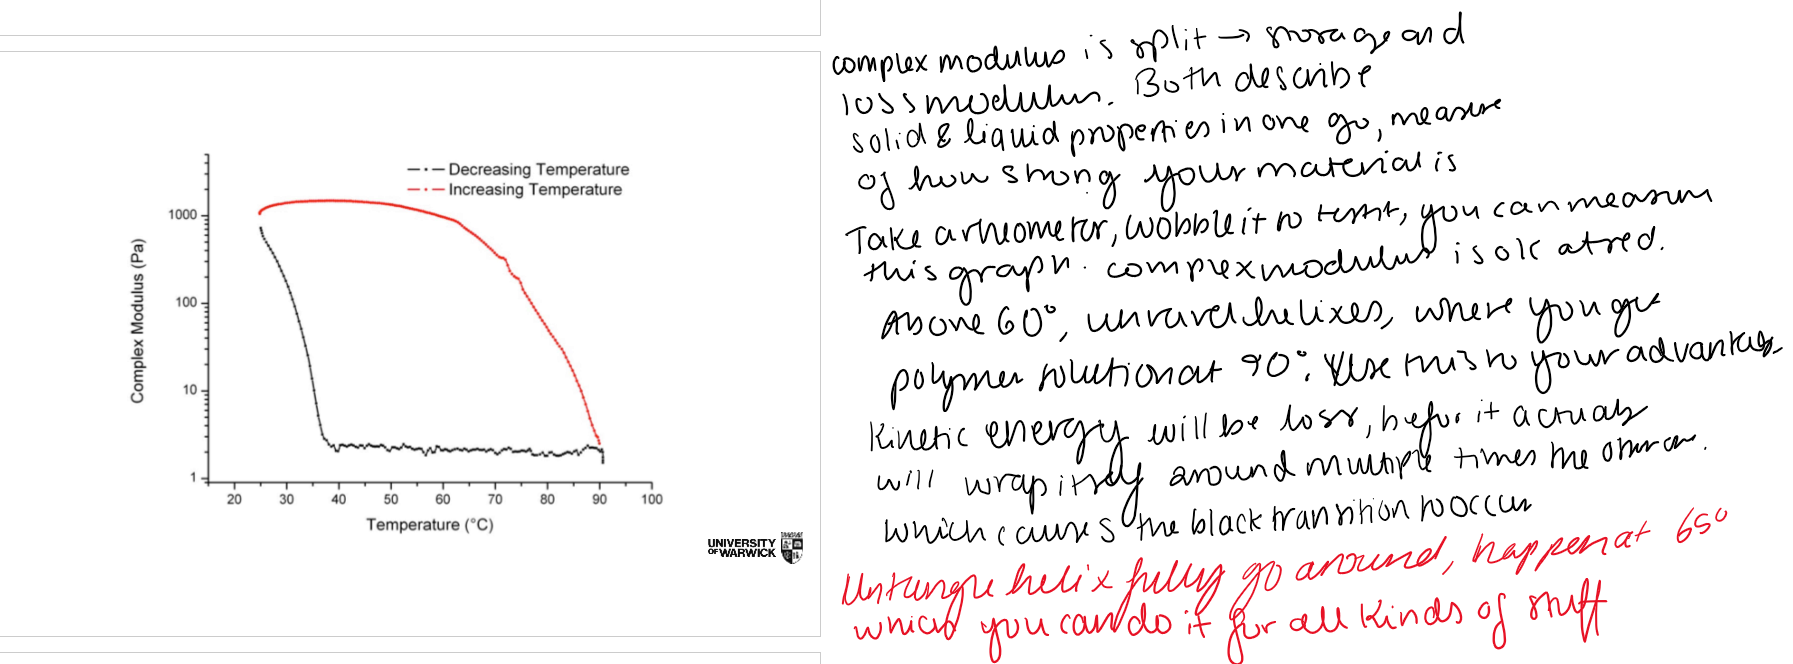 Decreasing Temperature
Increasing Temperature
1000
100
10
1
Complex Modulus (Pa)
20 30 40 50 60 70 80 90 100
Temperature (°C)
UNIVERSITY
OF WARWICK
complex modulus is split → storage and
loss modulus. Both describe
solid & liquid properties in one go, measure
of how strong your material is
Take a rheometer, wobble it to test it, you can measure
this graph. complex modulus is ok at red.
Above 60°, unravel helixes, where you get
polymer solution at 90°. Use this to your advantage
Kinetic energy will be loss, before it actually
will wrap itself around multiple times the other one.
which causes the black transition to occur
Untangle helix fully go around, happen at 65°
which you can do it for all kinds of stuff